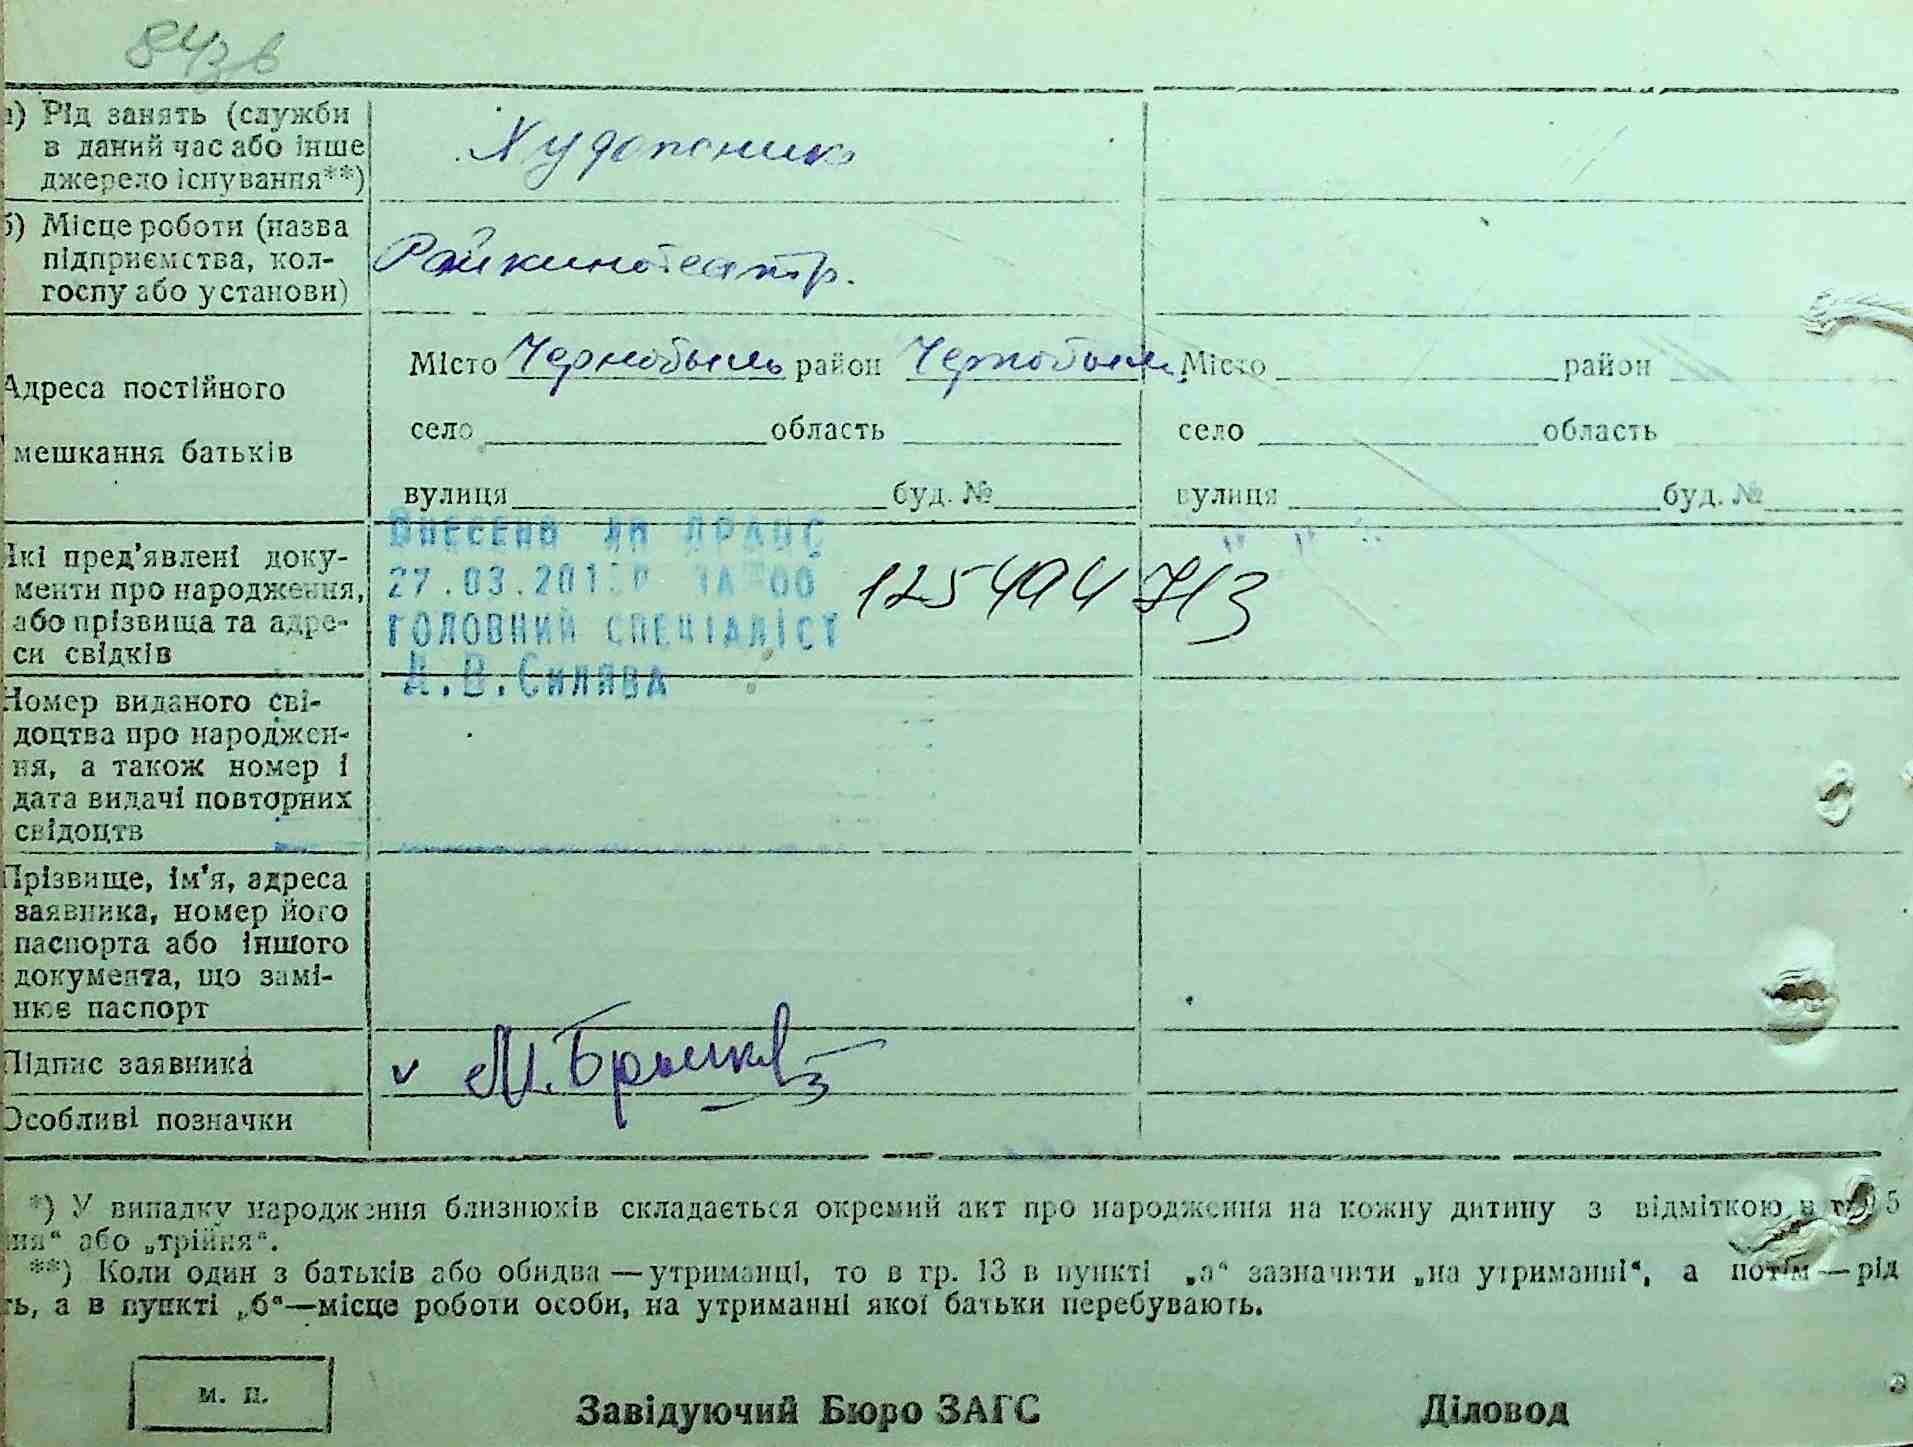 84зв
а) Рід занять (служби
в даний час або інше
джерело існування**)
Художник
б) Місце роботи (назва
підприємства, кол-
госпу або установи)
Райкинотеатр.
Адреса постійного
мешкання батьків
Місто Чернобыль район Чернобыль
село область
вулиця буд. №
Місто район
село область
вулиця буд. №
Які пред'явлені доку-
менти про народження,
або прізвища та адре-
си свідків
Внесено до ДРАЦС
27.03.201 ЗА 00
ГОЛОВНИЙ СПЕЦІАЛІСТ
Силява
" " "
Номер виданого сві-
доцтва про народжен-
ня, а також номер і
дата видачі повторних
свідоцтв
Прізвище, ім'я, адреса
заявника, номер його
паспорта або іншого
документа, що замі-
нює паспорт
Підпис заявника
Особливі позначки
*) У випадку народження близнюків складається окремий акт про народження на кожну дитину з відміткою в 5
ня" або „трійня".
**) Коли один з батьків або обидва—утриманці, то в гр. 13 в пункті „а" зазначити „на утриманні", а потім—рід
ть, а в пункті „б"—місце роботи особи, на утриманні якої батьки перебувають.
м. п.
Завідуючий Бюро ЗАГС
Діловод